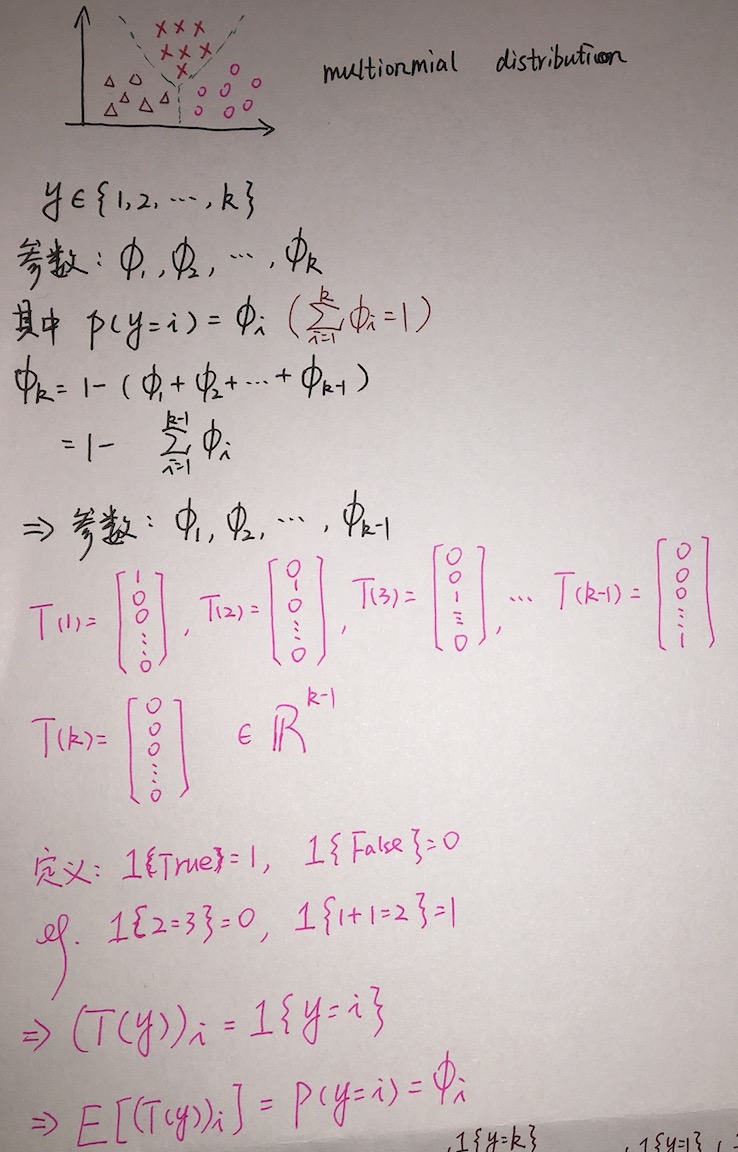 multiormial distribution
y ∈ {1, 2, ⋯, k}
参数: ϕ₁, ϕ₂, ⋯, ϕₖ
其中 p(y=i) = ϕᵢ (∑ᵢ₌₁ᵏ ϕᵢ = 1)
ϕₖ = 1 − (ϕ₁ + ϕ₂ + ⋯ + ϕₖ₋₁)
= 1 − ∑ᵢ₌₁ᵏ⁻¹ ϕᵢ
⇒ 参数: ϕ₁, ϕ₂, ⋯, ϕₖ₋₁
T(1) = [1 0 0 ⋮ 0], T(2) = [0 1 0 ⋮ 0], T(3) = [0 0 1 ⋮ 0], ⋯ T(k-1) = [0 0 0 ⋮ 1]
T(k) = [0 0 0 ⋮ 0] ∈ ℝᵏ⁻¹
定义: 1{True} = 1, 1{False} = 0
eg. 1{2=3} = 0, 1{1+1=2} = 1
⇒ (T(y))ᵢ = 1{y=i}
⇒ E[(T(y))ᵢ] = P(y=i) = ϕᵢ
1{y=k} , 1{y=1}